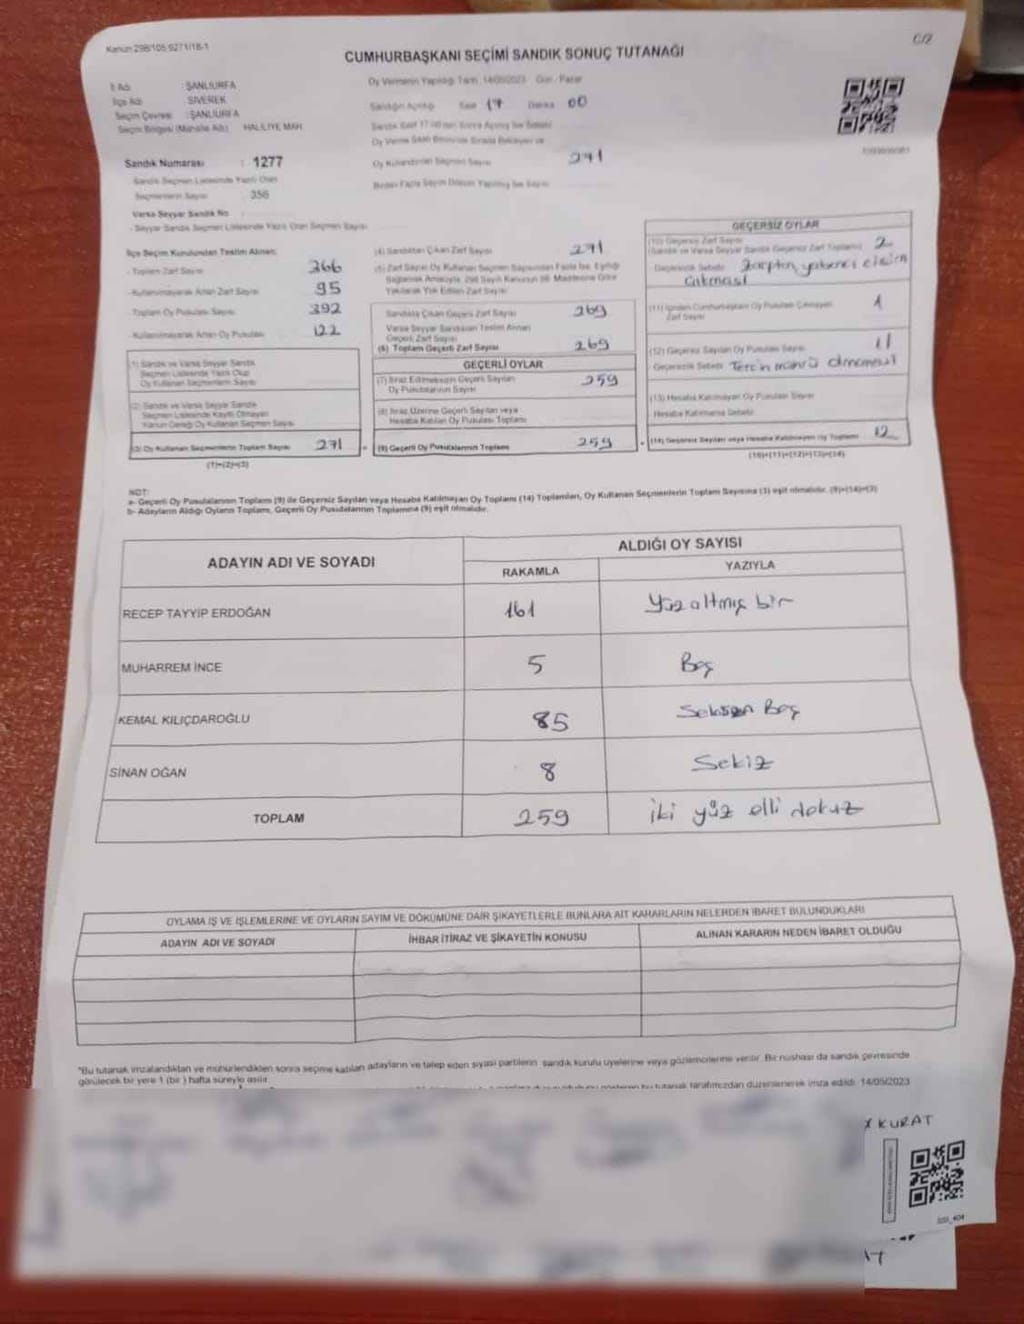 Kanun:298/105,6271/18-1
C/2
CUMHURBAŞKANI SEÇİMİ SANDIK SONUÇ TUTANAĞI
İl Adı : ŞANLIURFA
İlçe Adı : SİVEREK
Seçim Çevresi : ŞANLIURFA
Seçim Bölgesi (Mahalle Adı) HALİLİYE MAH.
Oy Vermenin Yapıldığı Tarih: 14/05/2023 Gün : Pazar
Sandığın Açılışı Saat 17 Dakika 00
Oy Kullandırılan Seçmen Sayısı 271
Birden Fazla Sayım Döküm Yapılmış İse Sayısı
Sandık Numarası : 1277
Sandık Seçmen Listesinde Yazılı Olan
Seçmenlerin Sayısı : 356
Varsa Seyyar Sandık No
Seyyar Sandık Seçmen Listesinde Yazılı Olan Seçmen Sayısı
İlçe Seçim Kurulundan Teslim Alınan;
- Toplam Zarf Sayısı 366
- Kullanılmayarak Artan Zarf Sayısı 95
Toplam Oy Pusulası Sayısı 392
- Kullanılmayarak Artan Oy Pusulası 122
(1) Sandık ve Varsa Seyyar Sandık
Seçmen Listesinde Yazılı Olup
Oy Kullanan Seçmenlerin Sayısı
(2) Sandık ve Varsa Seyyar Sandık
Seçmen Listesinde Kayıtlı Olmayan
Kanun Gereği Oy Kullanan Seçmen Sayısı
(3) Oy Kullanan Seçmenlerin Toplam Sayısı 271
(1)+(2)=(3)
(4) Sandıktan Çıkan Zarf Sayısı 271
(5) Zarf Sayısı Oy Kullanan Seçmen Sayısından Fazla İse, Eşitliği
Sağlamak Amacıyla, 298 Sayılı Kanunun 98. Maddesine Göre
Yakılarak Yok Edilen Zarf Sayısı
Sandıkta Çıkan Geçerli Zarf Sayısı 269
Varsa Seyyar Sandıktan Teslim Alınan
Geçerli Zarf Sayısı
(6) Toplam Geçerli Zarf Sayısı 269
GEÇERLİ OYLAR
(7) İtiraz Edilmeksizin Geçerli Sayılan
Oy Pusulalarının Sayısı 259
(8) İtiraz Üzerine Geçerli Sayılan veya
Hesaba Katılan Oy Pusulası Toplamı
(9) Geçerli Oy Pusulalarının Toplamı 259
GEÇERSİZ OYLAR
(10) Geçersiz Zarf Sayısı
(Sandık ve Varsa Seyyar Sandık Geçersiz Zarf Toplamı) 2
Geçersizlik Sebebi: Zarptan yabancı cisim
çıkması
(11) İçinden Cumhurbaşkanı Oy Pusulası Çıkmayan
Zarf Sayısı 1
(12) Geçersiz Sayılan Oy Pusulası Sayısı 11
Geçersizlik Sebebi: Tercih mührü olmaması
(13) Hesaba Katılmayan Oy Pusulası Sayısı
Hesaba Katılmama Sebebi:
(14) Geçersiz Sayılan veya Hesaba Katılmayan Oy Toplamı 12
(10)+(11)+(12)+(13)=(14)
NOT:
a- Geçerli Oy Pusulalarının Toplamı (9) ile Geçersiz Sayılan veya Hesaba Katılmayan Oy Toplamı (14) Toplamları, Oy Kullanan Seçmenlerin Toplam Sayısına (3) eşit olmalıdır. (9)+(14)=(3)
b- Adayların Aldığı Oyların Toplamı, Geçerli Oy Pusulalarının Toplamına (9) eşit olmalıdır.
ADAYIN ADI VE SOYADI
ALDIĞI OY SAYISI
RAKAMLA YAZIYLA
RECEP TAYYİP ERDOĞAN 161 Yüz altmış bir
MUHARREM İNCE 5 Beş
KEMAL KILIÇDAROĞLU 85 Seksen Beş
SİNAN OĞAN 8 Sekiz
TOPLAM 259 iki yüz elli dokuz
OYLAMA İŞ VE İŞLEMLERİNE VE OYLARIN SAYIM VE DÖKÜMÜNE DAİR ŞİKAYETLERLE BUNLARA AİT KARARLARIN NELERDEN İBARET BULUNDUKLARI
ADAYIN ADI VE SOYADI İHBAR İTİRAZ VE ŞİKAYETİN KONUSU ALINAN KARARIN NEDEN İBARET OLDUĞU
*Bu tutanak imzalandıktan ve mühürlendikten sonra seçime katılan adayların ve talep eden siyasi partilerin sandık kurulu üyelerine veya gözlemcilerine verilir. Bir nüshası da sandık çevresinde
görülecek bir yere 1 (bir ) hafta süreyle asılır.
bu tutanak tarafımızdan düzenlenerek imza edildi. 14/05/2023
KURAT